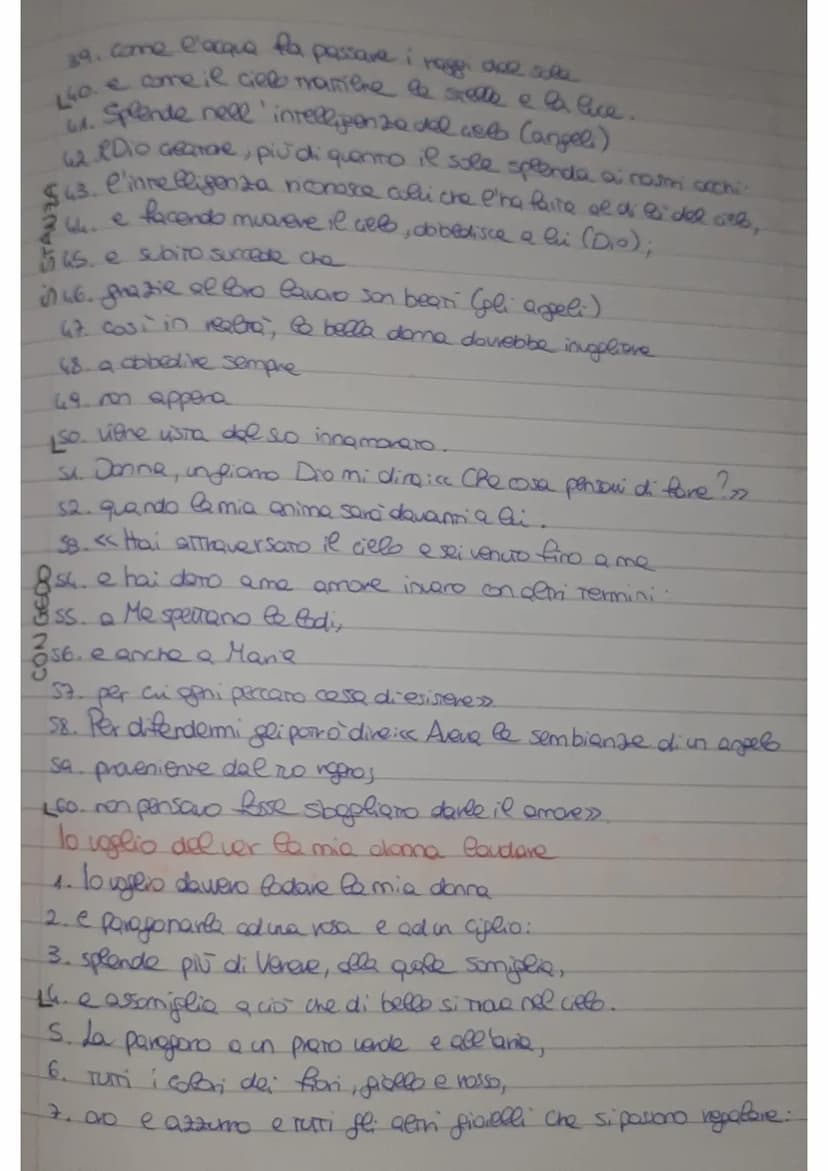 39. come l'acqua fa passare i raggi del sole
40. e come il cielo mantiene le stelle e la luce.
41. Splende nell'intelligenza del cielo (angeli)
42. Dio creatore, più di quanto il sole splenda ai nostri occhi:
43. l'intelligenza riconosce colui che l'ha fatta al di là del cielo,
44. e facendo muovere il cielo, obbedisce a lui (Dio);
STANZA 5
45. e subito succede che
46. grazie al loro lavoro son beati (gli angeli)
47. così in realtà, la bella donna dovrebbe invogliare
48. a obbedire sempre
49. non appena
50. viene vista dal suo innamorato.
51. Donna, un giorno Dio mi dirà: << Che cosa pensavi di fare? >>
52. quando la mia anima sarà davanti a lui.
53. << Hai attraversato il cielo e sei venuto fino a me
54. e hai dato a me amore invano con altri termini:
CONGEDO
55. a Me spettano le lodi,
56. e anche a Maria
57. per cui ogni peccato cessa di esistere >>
58. Per difendermi gli potrò dire: << Aveva le sembianze di un angelo
59. proveniente dal tuo regno;
60. non pensavo fosse sbagliato darle il amore >>
Io voglio del ver la mia donna laudare
1. Io voglio davvero lodare la mia donna
2. e paragonarla ad una rosa e ad un giglio:
3. splende più di Venere, alla quale somiglia,
4. e assomiglia a ciò che di bello si trova nel cielo.
5. La paragono a un prato verde e all'aria,
6. tutti i colori dei fiori, giallo e rosso,
7. oro e azzurro e tutti gli altri gioielli che si possono regalare: